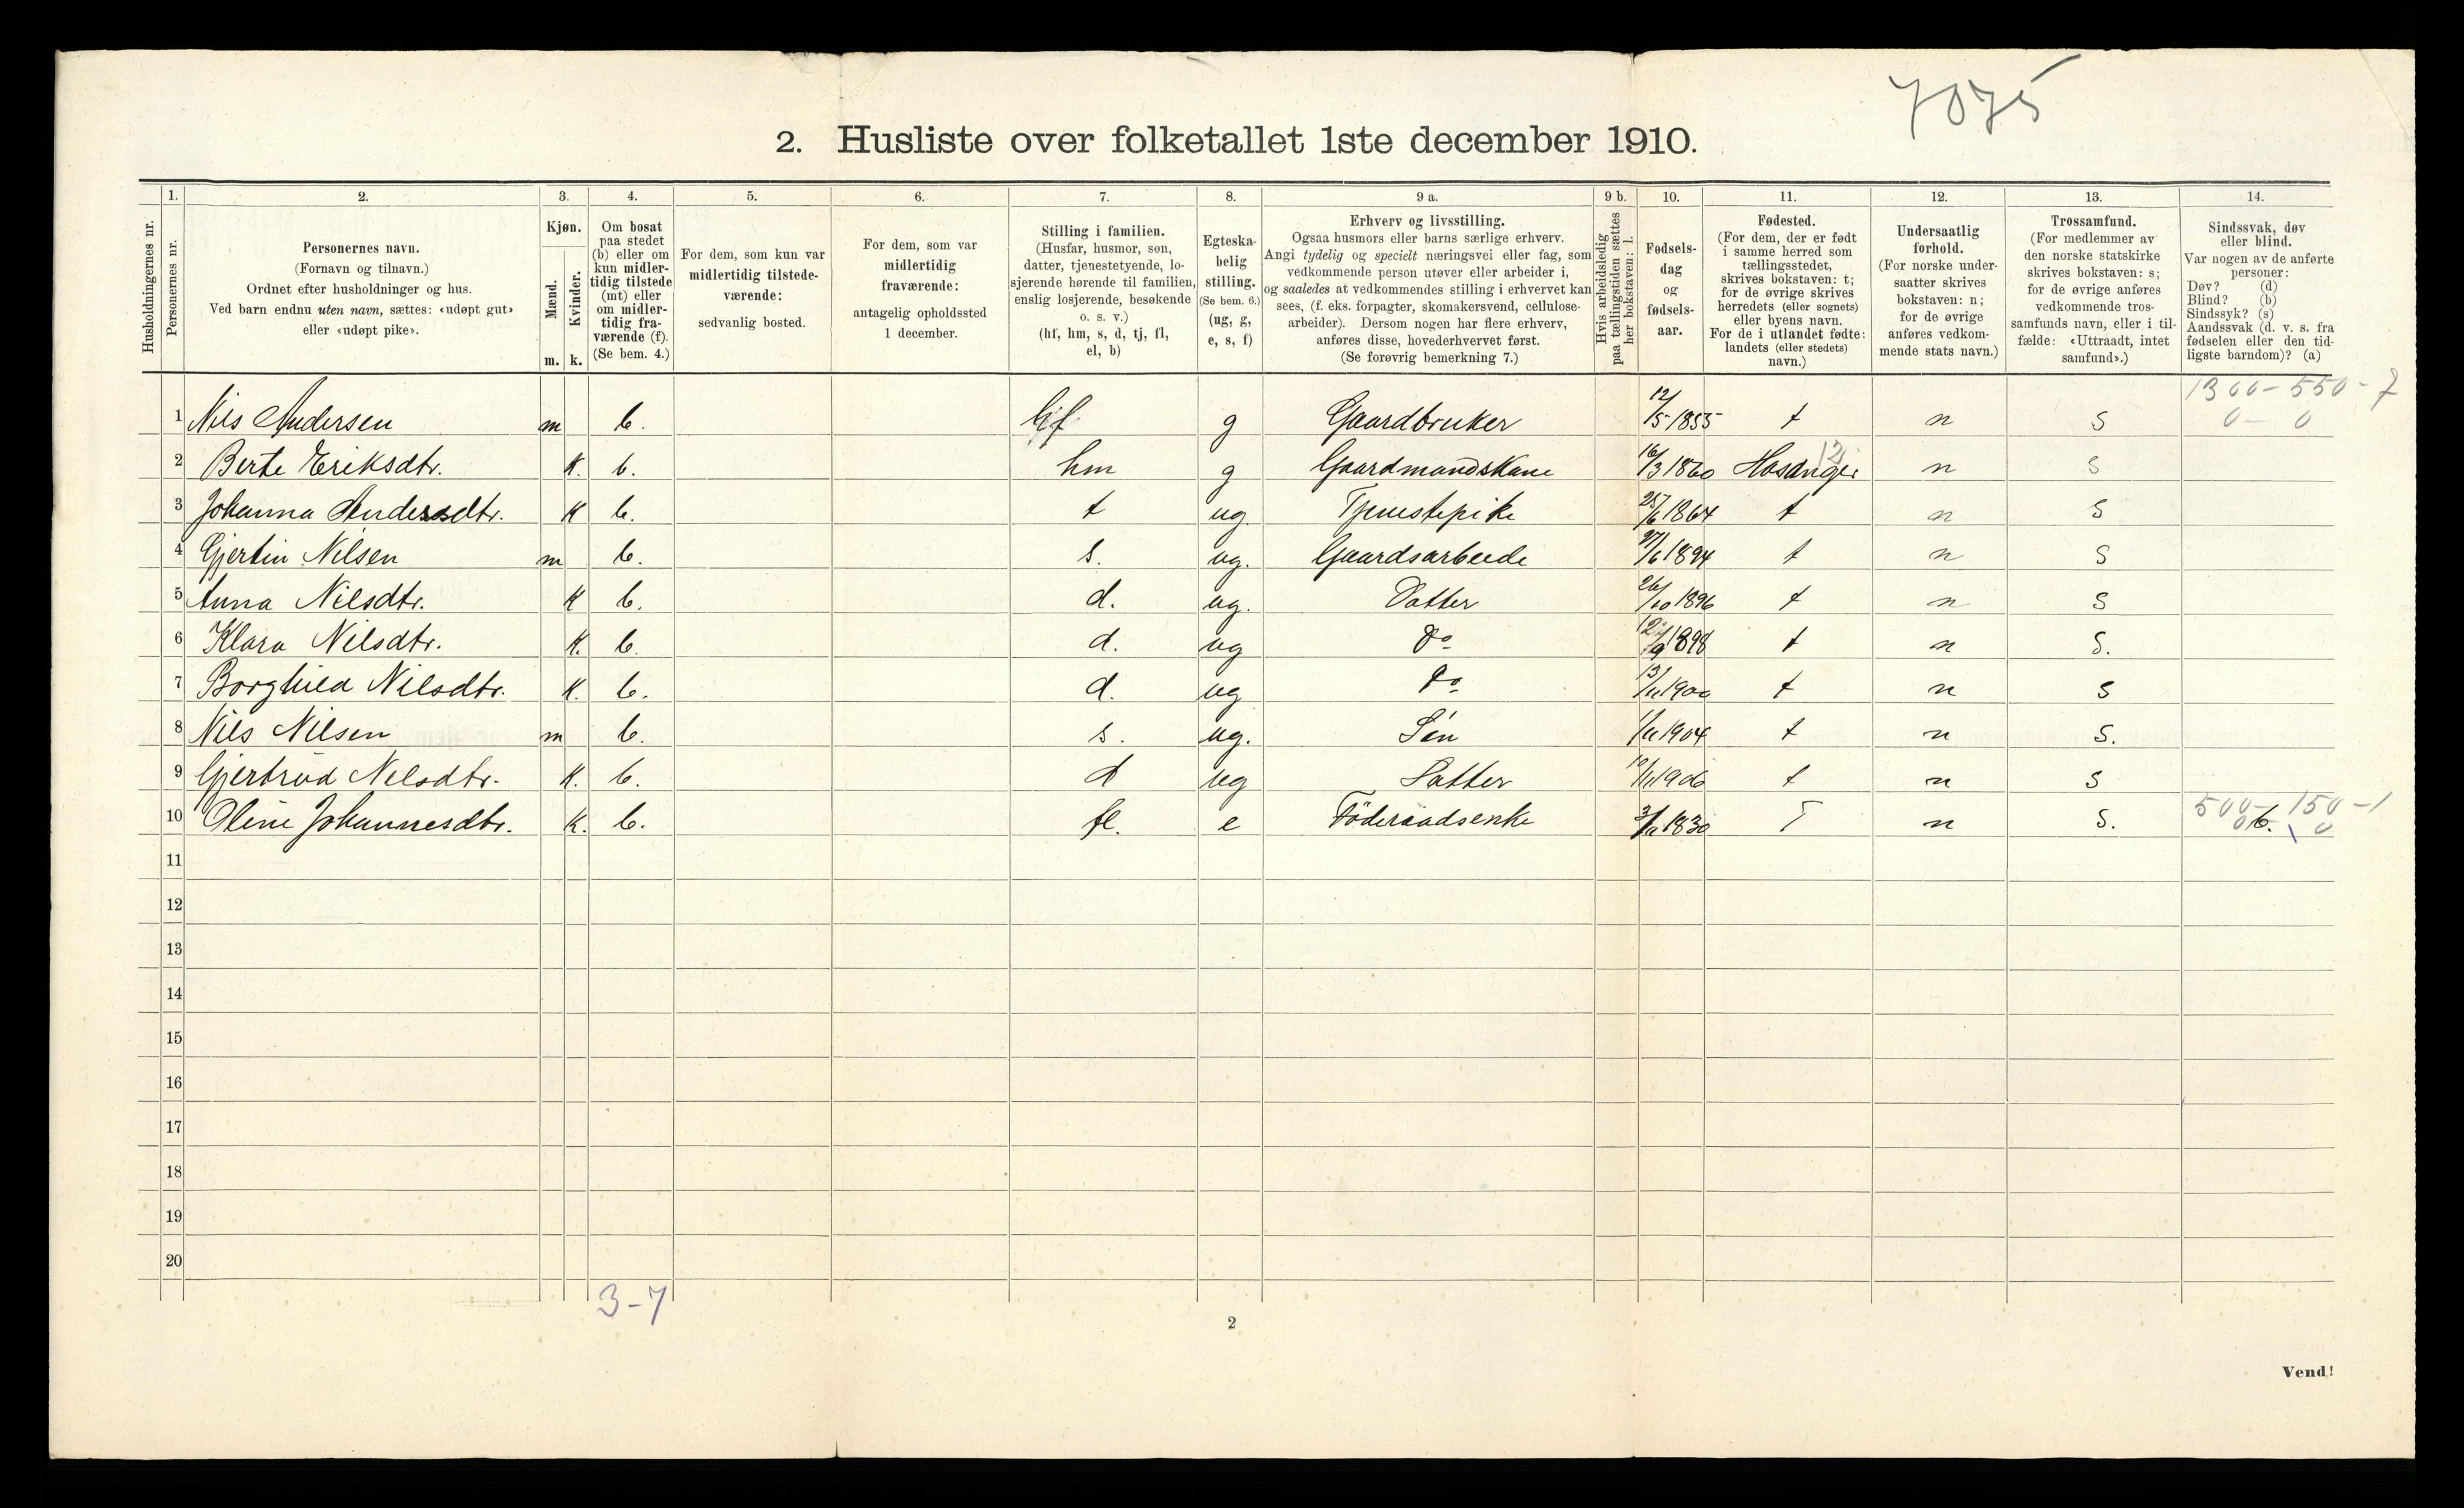 7075
2. Husliste over folketallet 1ste december 1910.
Husholdningernes nr.
1. Personernes nr.
2. Personernes navn.
(Fornavn og tilnavn.)
Ordnet efter husholdninger og hus.
Ved barn endnu uten navn, sættes: «udøpt gut»
eller «udøpt pike».
3. Kjøn.
Mænd. m.
Kvinder. k.
4. Om bosat
paa stedet
(b) eller om
kun midler-
tidig tilstede
(mt) eller
om midler-
tidig fra-
værende (f).
(Se bem. 4.)
5. For dem, som kun var
midlertidig tilstede-
værende:
sedvanlig bosted.
6. For dem, som var
midlertidig
fraværende:
antagelig opholdssted
1 december.
7. Stilling i familien.
(Husfar, husmor, søn,
datter, tjenestetyende, lo-
sjerende hørende til familien,
enslig losjerende, besøkende
o. s. v.)
(hf, hm, s, d, tj, fl,
el, b)
8. Egteska-
belig
stilling.
(Se bem. 6.)
(ug, g,
e, s, f)
9 a. Erhverv og livsstilling.
Ogsaa husmors eller barns særlige erhverv.
Angi tydelig og specielt næringsvei eller fag, som
vedkommende person utøver eller arbeider i,
og saaledes at vedkommendes stilling i erhvervet kan
sees, (f. eks. forpagter, skomakersvend, cellulose-
arbeider). Dersom nogen har flere erhverv,
anføres disse, hovederhvervet først.
(Se forøvrig bemerkning 7.)
9 b. Hvis arbeidsledig
paa tællingstiden sættes
her bokstaven: l.
10. Fødsels-
dag
og
fødsels-
aar.
11. Fødested.
(For dem, der er født
i samme herred som
tællingsstedet,
skrives bokstaven: t;
for de øvrige skrives
herredets (eller sognets)
eller byens navn.
For de i utlandet fødte:
landets (eller stedets)
navn.)
12. Undersaatlig
forhold.
(For norske under-
saatter skrives
bokstaven: n;
for de øvrige
anføres vedkom-
mende stats navn.)
13. Trossamfund.
(For medlemmer av
den norske statskirke
skrives bokstaven: s;
for de øvrige anføres
vedkommende tros-
samfunds navn, eller i til-
fælde: «Uttraadt, intet
samfund».)
14. Sindssvak, døv
eller blind.
Var nogen av de anførte
personer:
Døv? (d)
Blind? (b)
Sindssyk? (s)
Aandssvak (d. v. s. fra
fødselen eller den tid-
ligste barndom)? (a)
1300-550-7
0 - 0
1 Nils Andersen m b. hf g Gaardbruker 12/5 1855 t n s
2 Berte Eriksdtr. K. b. hm g Gaardmandskone 16/3 1860 Hosanger n s
3 Johanna Andersdtr. K b. t ug Tjenestepike 25/6 1864 t n s
4 Gjertin Nilsen m b. s. ug. Gaardsarbeide 27/6 1894 t n s
5 Anna Nilsdtr. K b. d. ug. Datter 26/10 1896 t n s
6 Klara Nilsdtr. K. b. d. ug Do 1898 t n s.
7 Borghild Nilsdtr. K. b. d. ug Do 13/11 1900 t n s
8 Nils Nilsen m b. s. ug. Søn 1/11 1904 t n s.
9 Gjertrud Nilsdtr. K. b. d ug Datter 10/11 1906 t n s
500 - 150 - 1
10 Oline Johannesdtr. K. b. fl. e Föderaadsenke 1830 T n s. b. 0
11
12
13
14
15
16
17
18
19
20
3-7
2
Vend!